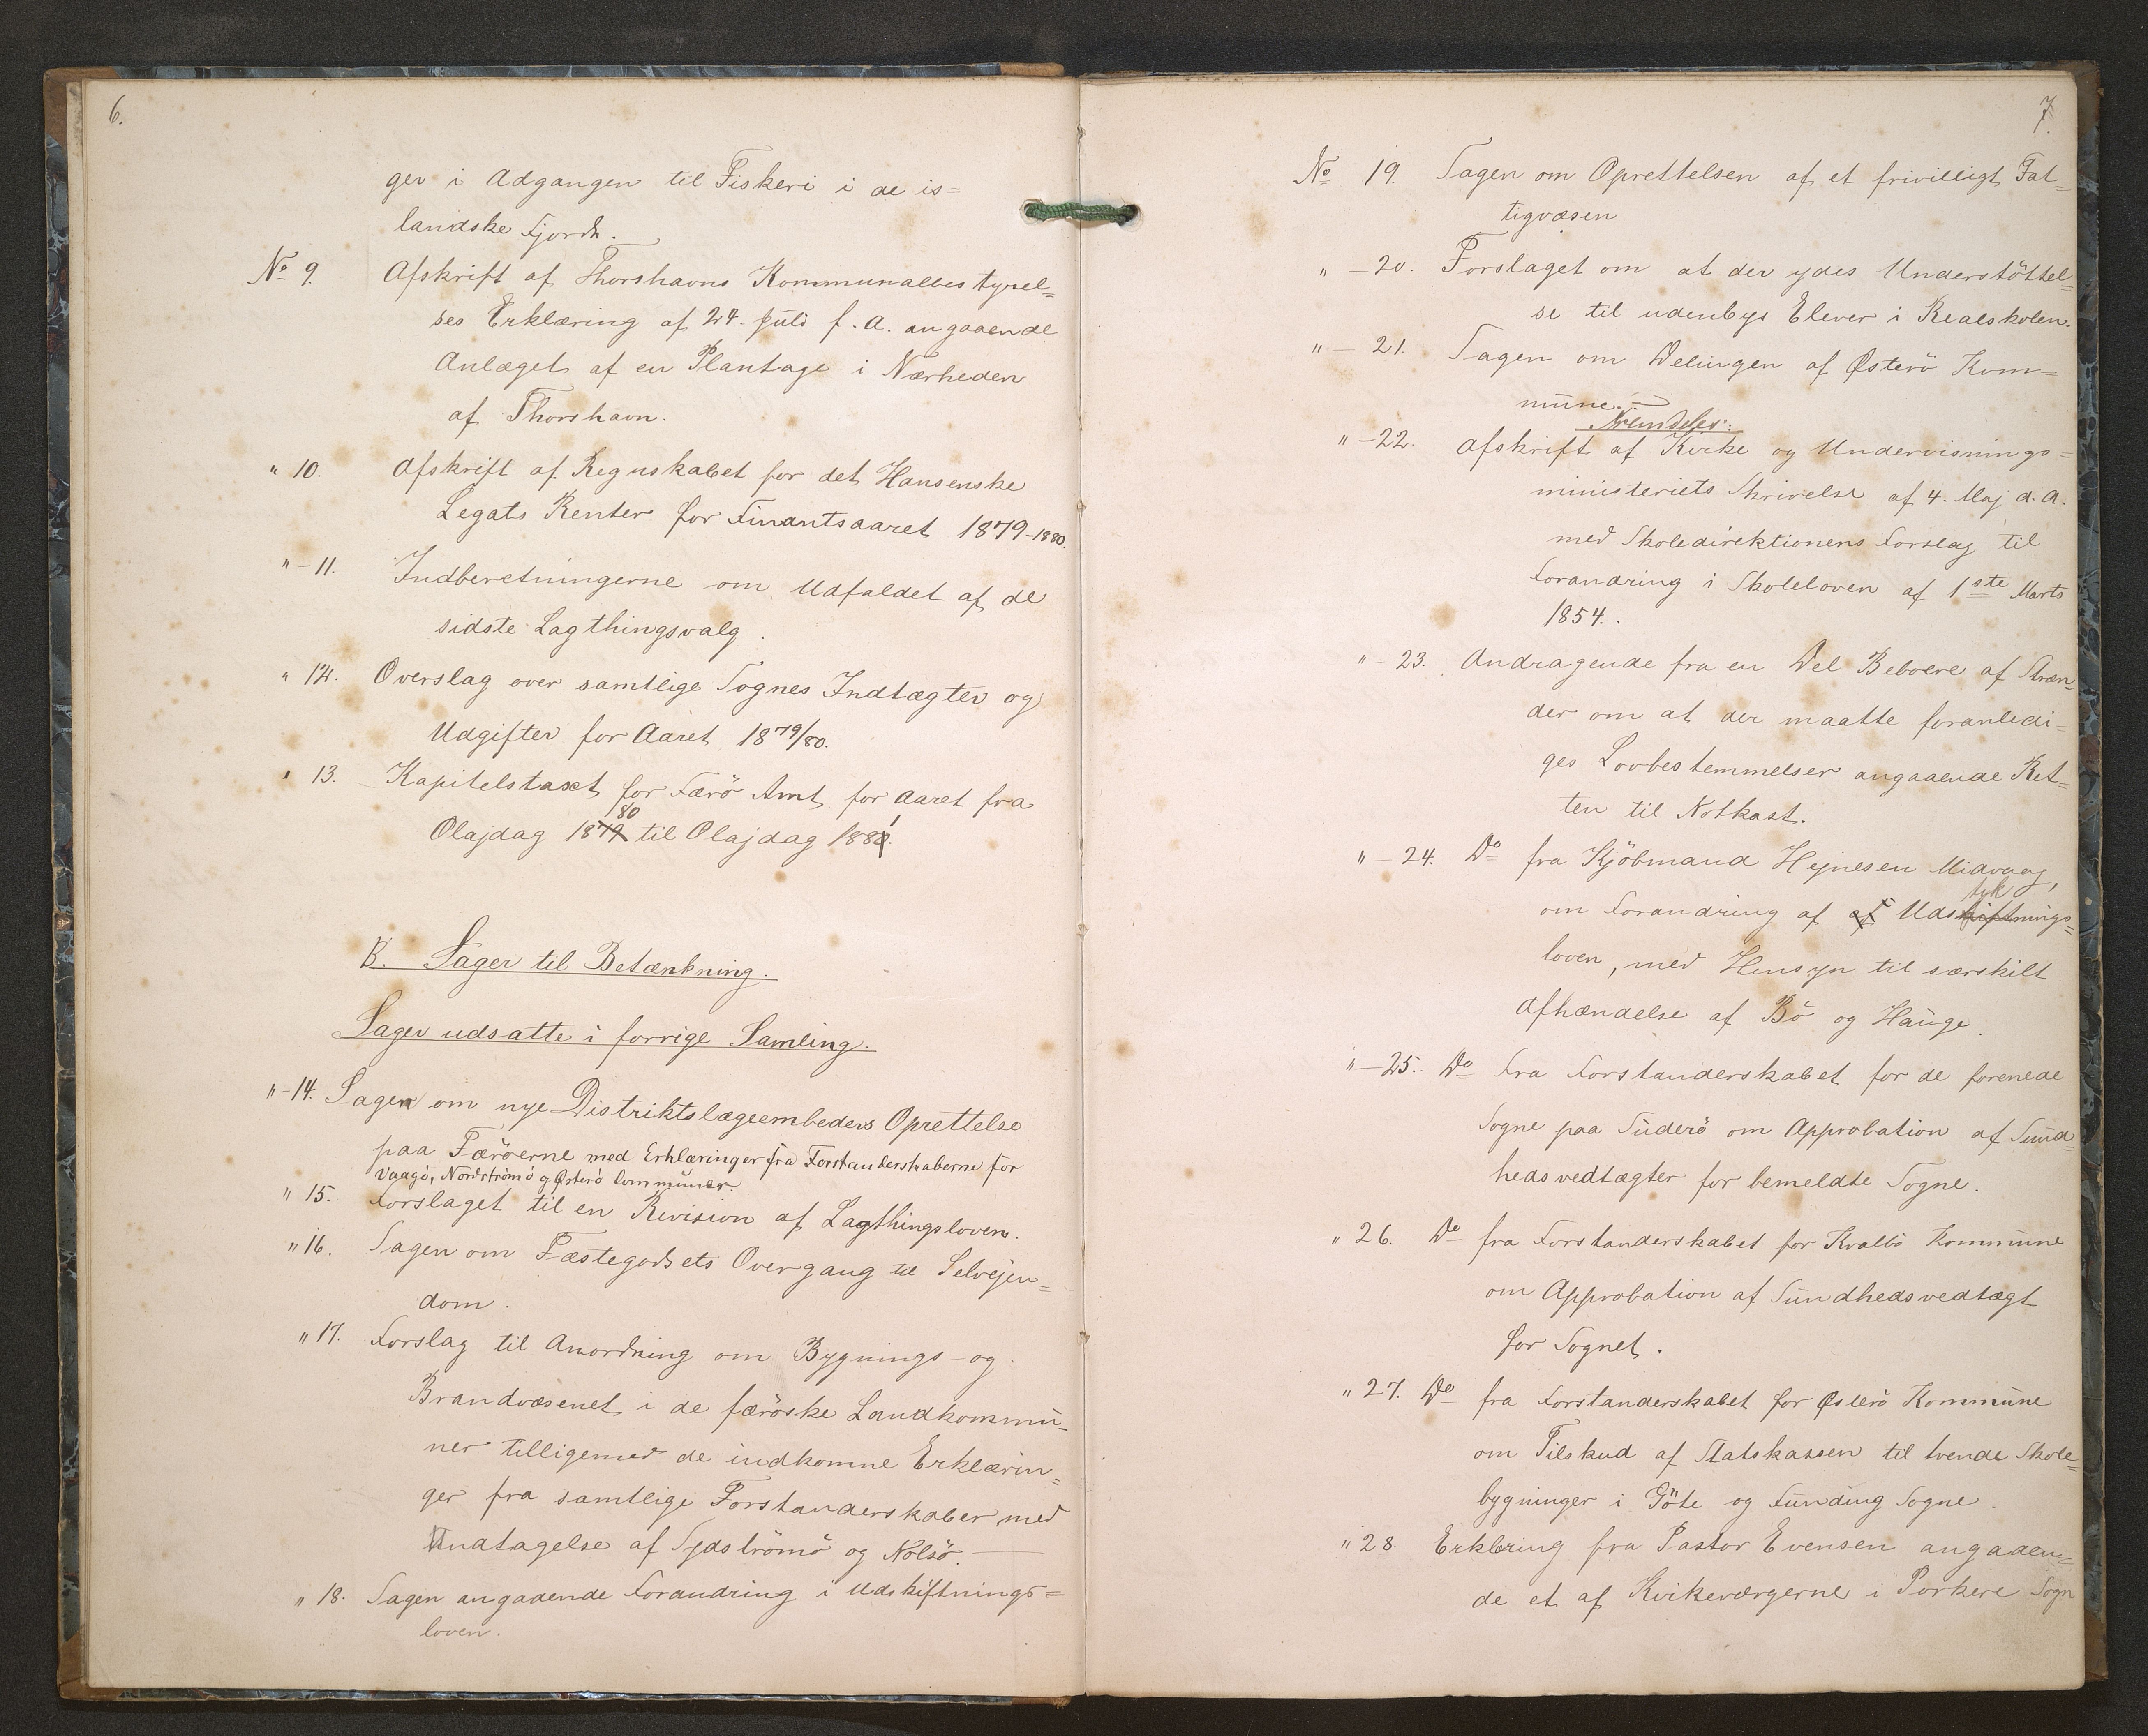 6.
ger i Adgangen til Fiskeri i de is=
landske Fjorde.
No 9. Afskrift af Thorshavns Kommunalbestyrel=
ses Erklæring af 24. Juli f. A. angaaende
Anlæget af en Plantage i Nærheden
af Thorshavn.
" 10. Afskrift af Regnskabet for det Hansenske
Legats Renter for Finantsaaret 1879-1880.
" - 11. Indberetningerne om Udfaldet af de
sidste Lagthingsvalg.
" 12. Overslag over samtlige Sognes Indtægter og
Udgifter for Aaret 1879/80.
" 13. Kapitelstaxt for Færö Amt for Aaret fra
80
Olajdag 1879 til Olajdag 1881.
B. Sager til Betænkning.
Sager udsatte i forrige Samling.
" - 14. Sagen om nye Distriktslægeembeders Oprettelse
paa Færöerne med Erklæringer fra Forstanderskaberne for
Vaagö, Nordströmö og Österö Communer.
" 15. Forslaget til en Revision af Lagthingsloven.
" 16. Sagen om Fæstegodsets Overgang til Selvejen=
dom.
" 17. Forslag til Anordning om Bygnings- og
Brandvæsenet i de færöske Landkommu=
ner tilligemed de indkomne Erklærin=
ger fra samtlige Forstanderskaber med
Undtagelse af Sydströmö og Nolsö. —
" 18. Sagen angaaende Forandring i Udskiftnings=
loven.
7.
No 19. Sagen om Oprettelsen af et frivilligt Fat=
tigvæsen
" - 20. Forslaget om at der ydes Understöttel=
se til udenbys Elever i Realskolen.
" - 21. Sagen om Delingen af Østerö Kom=
mune. —
" - 22. Afskrift af Kirke og Undervisnings=
ministeriets Skrivelse af 4. Maj d. A.
med Skoledirektionens Forslag til
Forandring i Skoleloven af 1ste Marts
1854.
" - 23. Andragende fra en Del Beboere af Stræn=
der om at der maatte foranledi=
ges Lovbestemmelser angaaende Ret=
ten til Notkast.
" - 24. Do fra Kjöbmand Hejnesen Midvaag,
tyk
om Forandring af af Udskiftnings=
loven, med Hensyn til særskilt
Afhændelse af Bö og Hauge.
" - 25. Do fra Forstanderskabet for de forenede
Sogne paa Suderö om Approbation af Sund=
hedsvedtægter for bemeldte Sogne.
" 26. Do fra Forstanderskabet for Kvalbö Kommune
om Approbation af Sundhedsvedtægt
for Sognet.
" 27. Do fra Forstanderskabet for Østerö Kommune
om Tilskud af Statskassen til tvende Skole=
bygninger i Göte og Funding Sogne.
" 28. Erklæring fra Pastor Evensen angaaen=
de et af Kirkeværgerne i Porkere Sogn